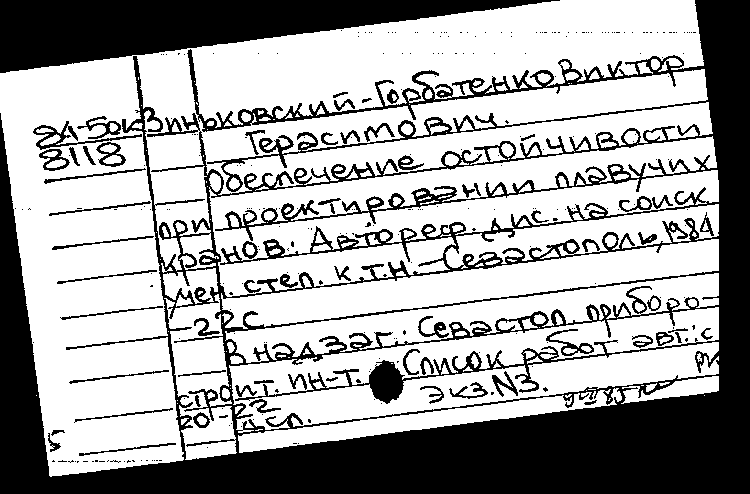 84-50к Зиньковский-Горбатенко, Виктор
8118 Герасимович.
Обеспечение остойчивости
при проектировании плавучих
кранов: Автореф. дис. на соиск
учен. степ. к.т.н. - Севастополь, 1984
- 22 с.
В надзаг.: Севастоп. приборо-
строит. ин-т. Список работ авт.: с
20-22
Экз. N3.
дсп.
5